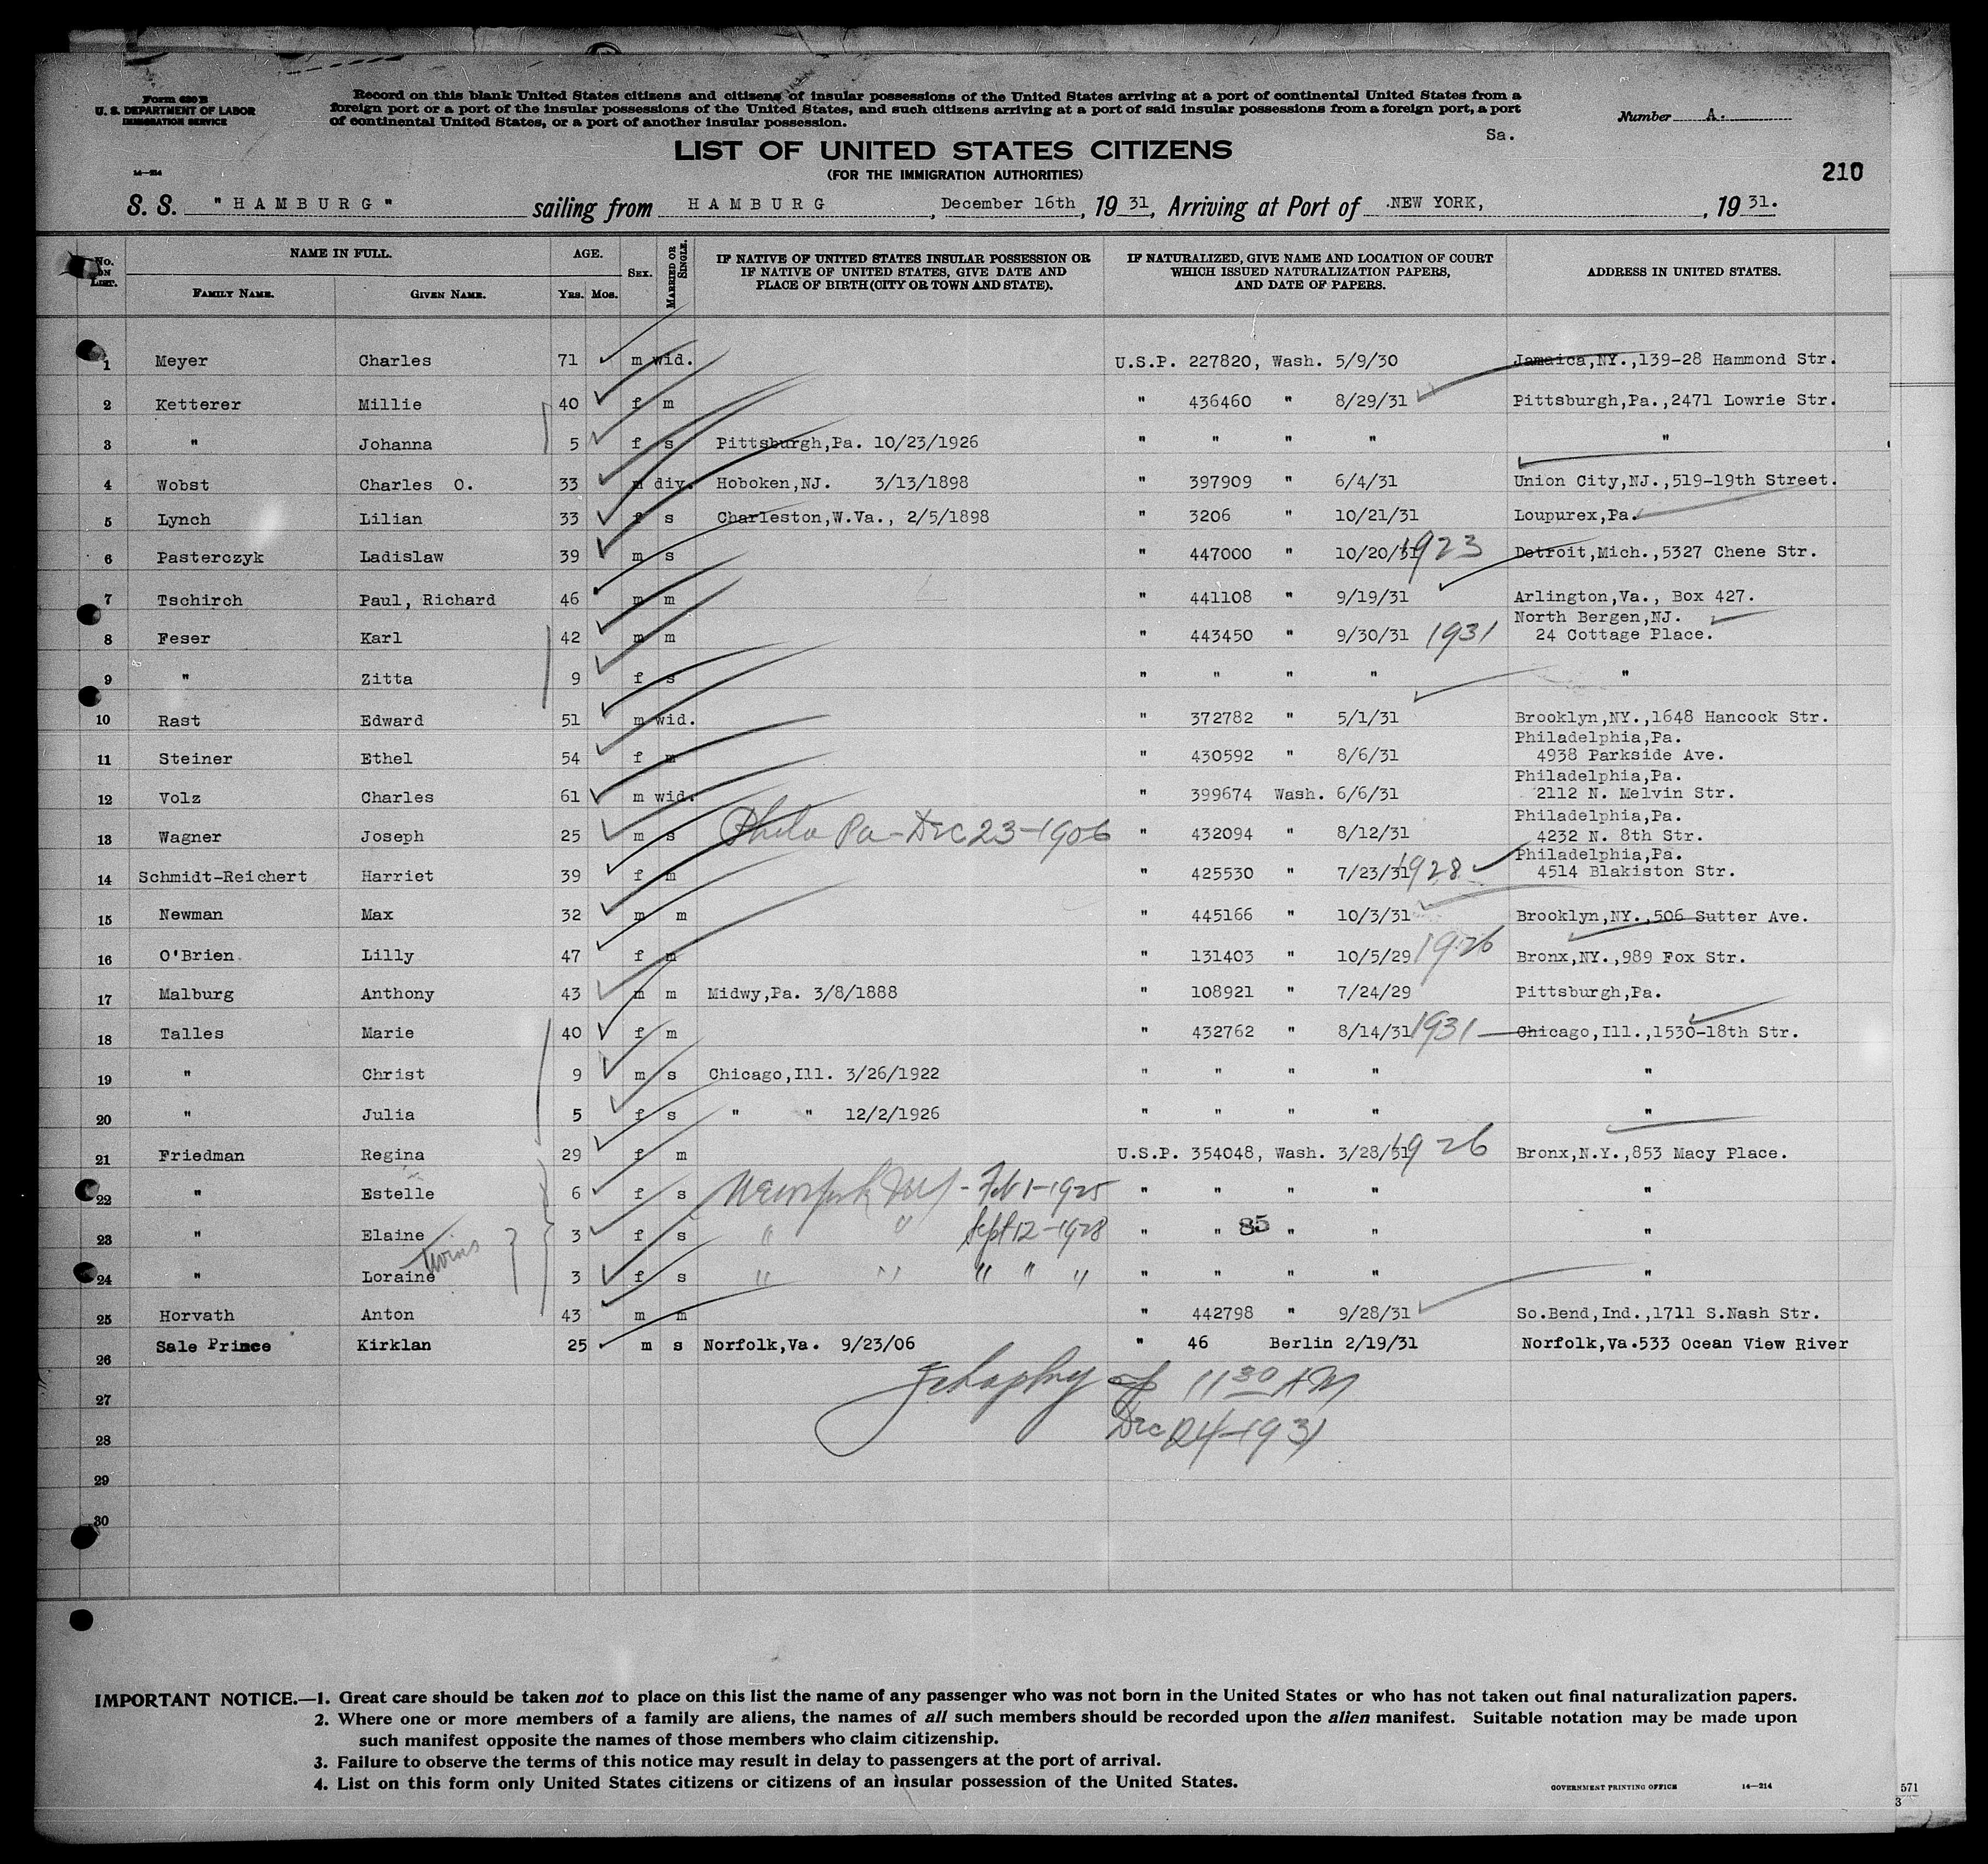 Form 630 B
U. S. DEPARTMENT OF LABOR
IMMIGRATION SERVICE
14—214
Record on this blank United States citizens and citizens of insular possessions of the United States arriving at a port of continental United States from a
foreign port or a port of the insular possessions of the United States, and such citizens arriving at a port of said insular possessions from a foreign port, a port
of continental United States, or a port of another insular possession.
Number A.
Sa.
LIST OF UNITED STATES CITIZENS
(FOR THE IMMIGRATION AUTHORITIES)
210
S. S. "HAMBURG" sailing from HAMBURG, December 16th, 1931, Arriving at Port of NEW YORK, , 1931.
No. on List. NAME IN FULL. Family Name. Given Name. AGE. Yrs. Mos. Sex. Married or Single. IF NATIVE OF UNITED STATES INSULAR POSSESSION OR IF NATIVE OF UNITED STATES, GIVE DATE AND PLACE OF BIRTH (CITY OR TOWN AND STATE). IF NATURALIZED, GIVE NAME AND LOCATION OF COURT WHICH ISSUED NATURALIZATION PAPERS, AND DATE OF PAPERS. ADDRESS IN UNITED STATES.
1 Meyer Charles 71 m wid. U.S.P. 227820, Wash. 5/9/30 Jamaica,NY.,139-28 Hammond Str.
2 Ketterer Millie 40 f m " 436460 " 8/29/31 Pittsburgh,Pa.,2471 Lowrie Str.
3 " Johanna 5 f s Pittsburgh,Pa. 10/23/1926 " " " " "
4 Wobst Charles O. 33 m div. Hoboken,NJ. 3/13/1898 " 397909 " 6/4/31 Union City,NJ.,519-19th Street.
5 Lynch Lilian 33 f s Charleston,W.Va., 2/5/1898 " 3206 " 10/21/31 Loupurex,Pa.
6 Pasterczyk Ladislaw 39 m s " 447000 " 10/20/31 1923 Detroit,Mich.,5327 Chene Str.
7 Tschirch Paul, Richard 46 m m " 441108 " 9/19/31 Arlington,Va., Box 427.
8 Feser Karl 42 m m " 443450 " 9/30/31 1931 North Bergen,NJ. 24 Cottage Place.
9 " Zitta 9 f s " " " " "
10 Rast Edward 51 m wid. " 372782 " 5/1/31 Brooklyn,NY.,1648 Hancock Str.
11 Steiner Ethel 54 f m " 430592 " 8/6/31 Philadelphia,Pa. 4938 Parkside Ave.
12 Volz Charles 61 m wid. " 399674 Wash. 6/6/31 Philadelphia,Pa. 2112 N. Melvin Str.
13 Wagner Joseph 25 m s Phila Pa - Dec 23-1906 " 432094 " 8/12/31 Philadelphia,Pa. 4232 N. 8th Str.
14 Schmidt-Reichert Harriet 39 f m " 425530 " 7/23/31 1928 Philadelphia,Pa. 4514 Blakiston Str.
15 Newman Max 32 m m " 445166 " 10/3/31 Brooklyn,NY.,506 Sutter Ave.
16 O'Brien Lilly 47 f m " 131403 " 10/5/29 1926 Bronx,NY.,989 Fox Str.
17 Malburg Anthony 43 m m Midwy,Pa. 3/8/1888 " 108921 " 7/24/29 Pittsburgh,Pa.
18 Talles Marie 40 f m " 432762 " 8/14/31 1931 Chicago,Ill.,1530-18th Str.
19 " Christ 9 m s Chicago,Ill. 3/26/1922 " " " " "
20 " Julia 5 f s " " 12/2/1926 " " " " "
21 Friedman Regina 29 f m U.S.P. 354048, Wash. 3/28/31 1926 Bronx,N.Y.,853 Macy Place.
22 " Estelle 6 f s New York - Feb 1-1925 " " " " "
23 " Elaine 3 f s " " Sept 12-1928 " " 85 " " "
twins
24 " Loraine 3 f s " " " " " " " " " "
25 Horvath Anton 43 m m " 442798 " 9/28/31 So.Bend,Ind.,1711 S.Nash Str.
26 Sale Prince Kirklan 25 m s Norfolk,Va. 9/23/06 " 46 Berlin 2/19/31 Norfolk,Va.533 Ocean View River
11 30 AM
27
Dec 24-1931
28
29
30
IMPORTANT NOTICE.—1. Great care should be taken not to place on this list the name of any passenger who was not born in the United States or who has not taken out final naturalization papers.
2. Where one or more members of a family are aliens, the names of all such members should be recorded upon the alien manifest. Suitable notation may be made upon
such manifest opposite the names of those members who claim citizenship.
3. Failure to observe the terms of this notice may result in delay to passengers at the port of arrival.
4. List on this form only United States citizens or citizens of an insular possession of the United States.
GOVERNMENT PRINTING OFFICE 14—214
571
3